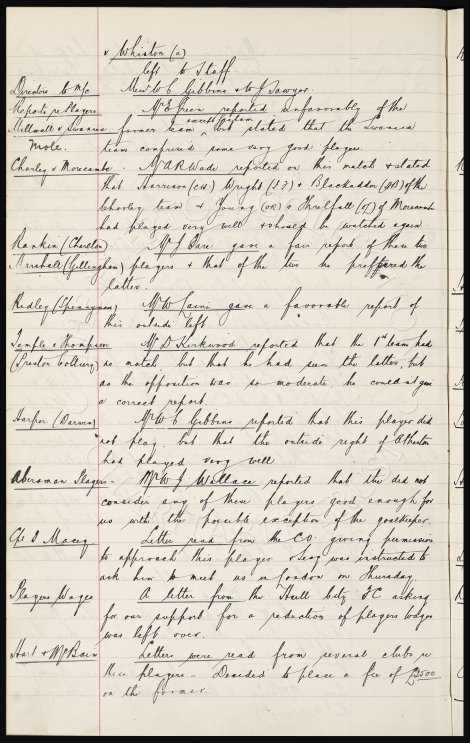 v Whiston (a)
left to Staff
Directors to M/c Messrs W C Gibbins & to J Sawyer
Reports re Players Mr E Green reported unfavorably of the
Millwall v Swansea former team, but stated that the Swansea
team comprised some very good players.
Chorley v Morecambe. Mr A R Wade reported on this match & stated
that Harrison (CH) Bright & Blackadder of the
Chorley team & Young (OR) & Threlfall of Morecambe
had played very well & should be watched again
Rankin (Charlton) Mr J gave a fair report of these two
Marshall (Gillingham) players & that of the two he preffered the
latter.
Ridley (Spennymoor) Mr W gave a favorable report of
this outside left
Temple & Thompson Mr D Kirkwood reported that the 1st team had
(Preston Colliery) no match but that he had seen the latter, but
as the opposition was so moderate he could not give
a correct report.
Harper (Darwen) Mr W C Gibbins reported that this player did
not play, but that the outside right of Atherton
had played very well
Aberaman Players. Mr W J Wallace reported that he did not
consider any of these players good enough for
us with the possible exception of the goalkeeper.
Cpl D Macey Letter read from the C.O. giving permission
to approach this player & Secy was instructed to
ask him to meet us in London on Thursday
Players Wages A letter from the Hull City FC asking
for our support for a reduction of players wages
was left over.
Hart & McBain Letters were read from several clubs re
these players - Decided to place a fee of £2500
on the former.